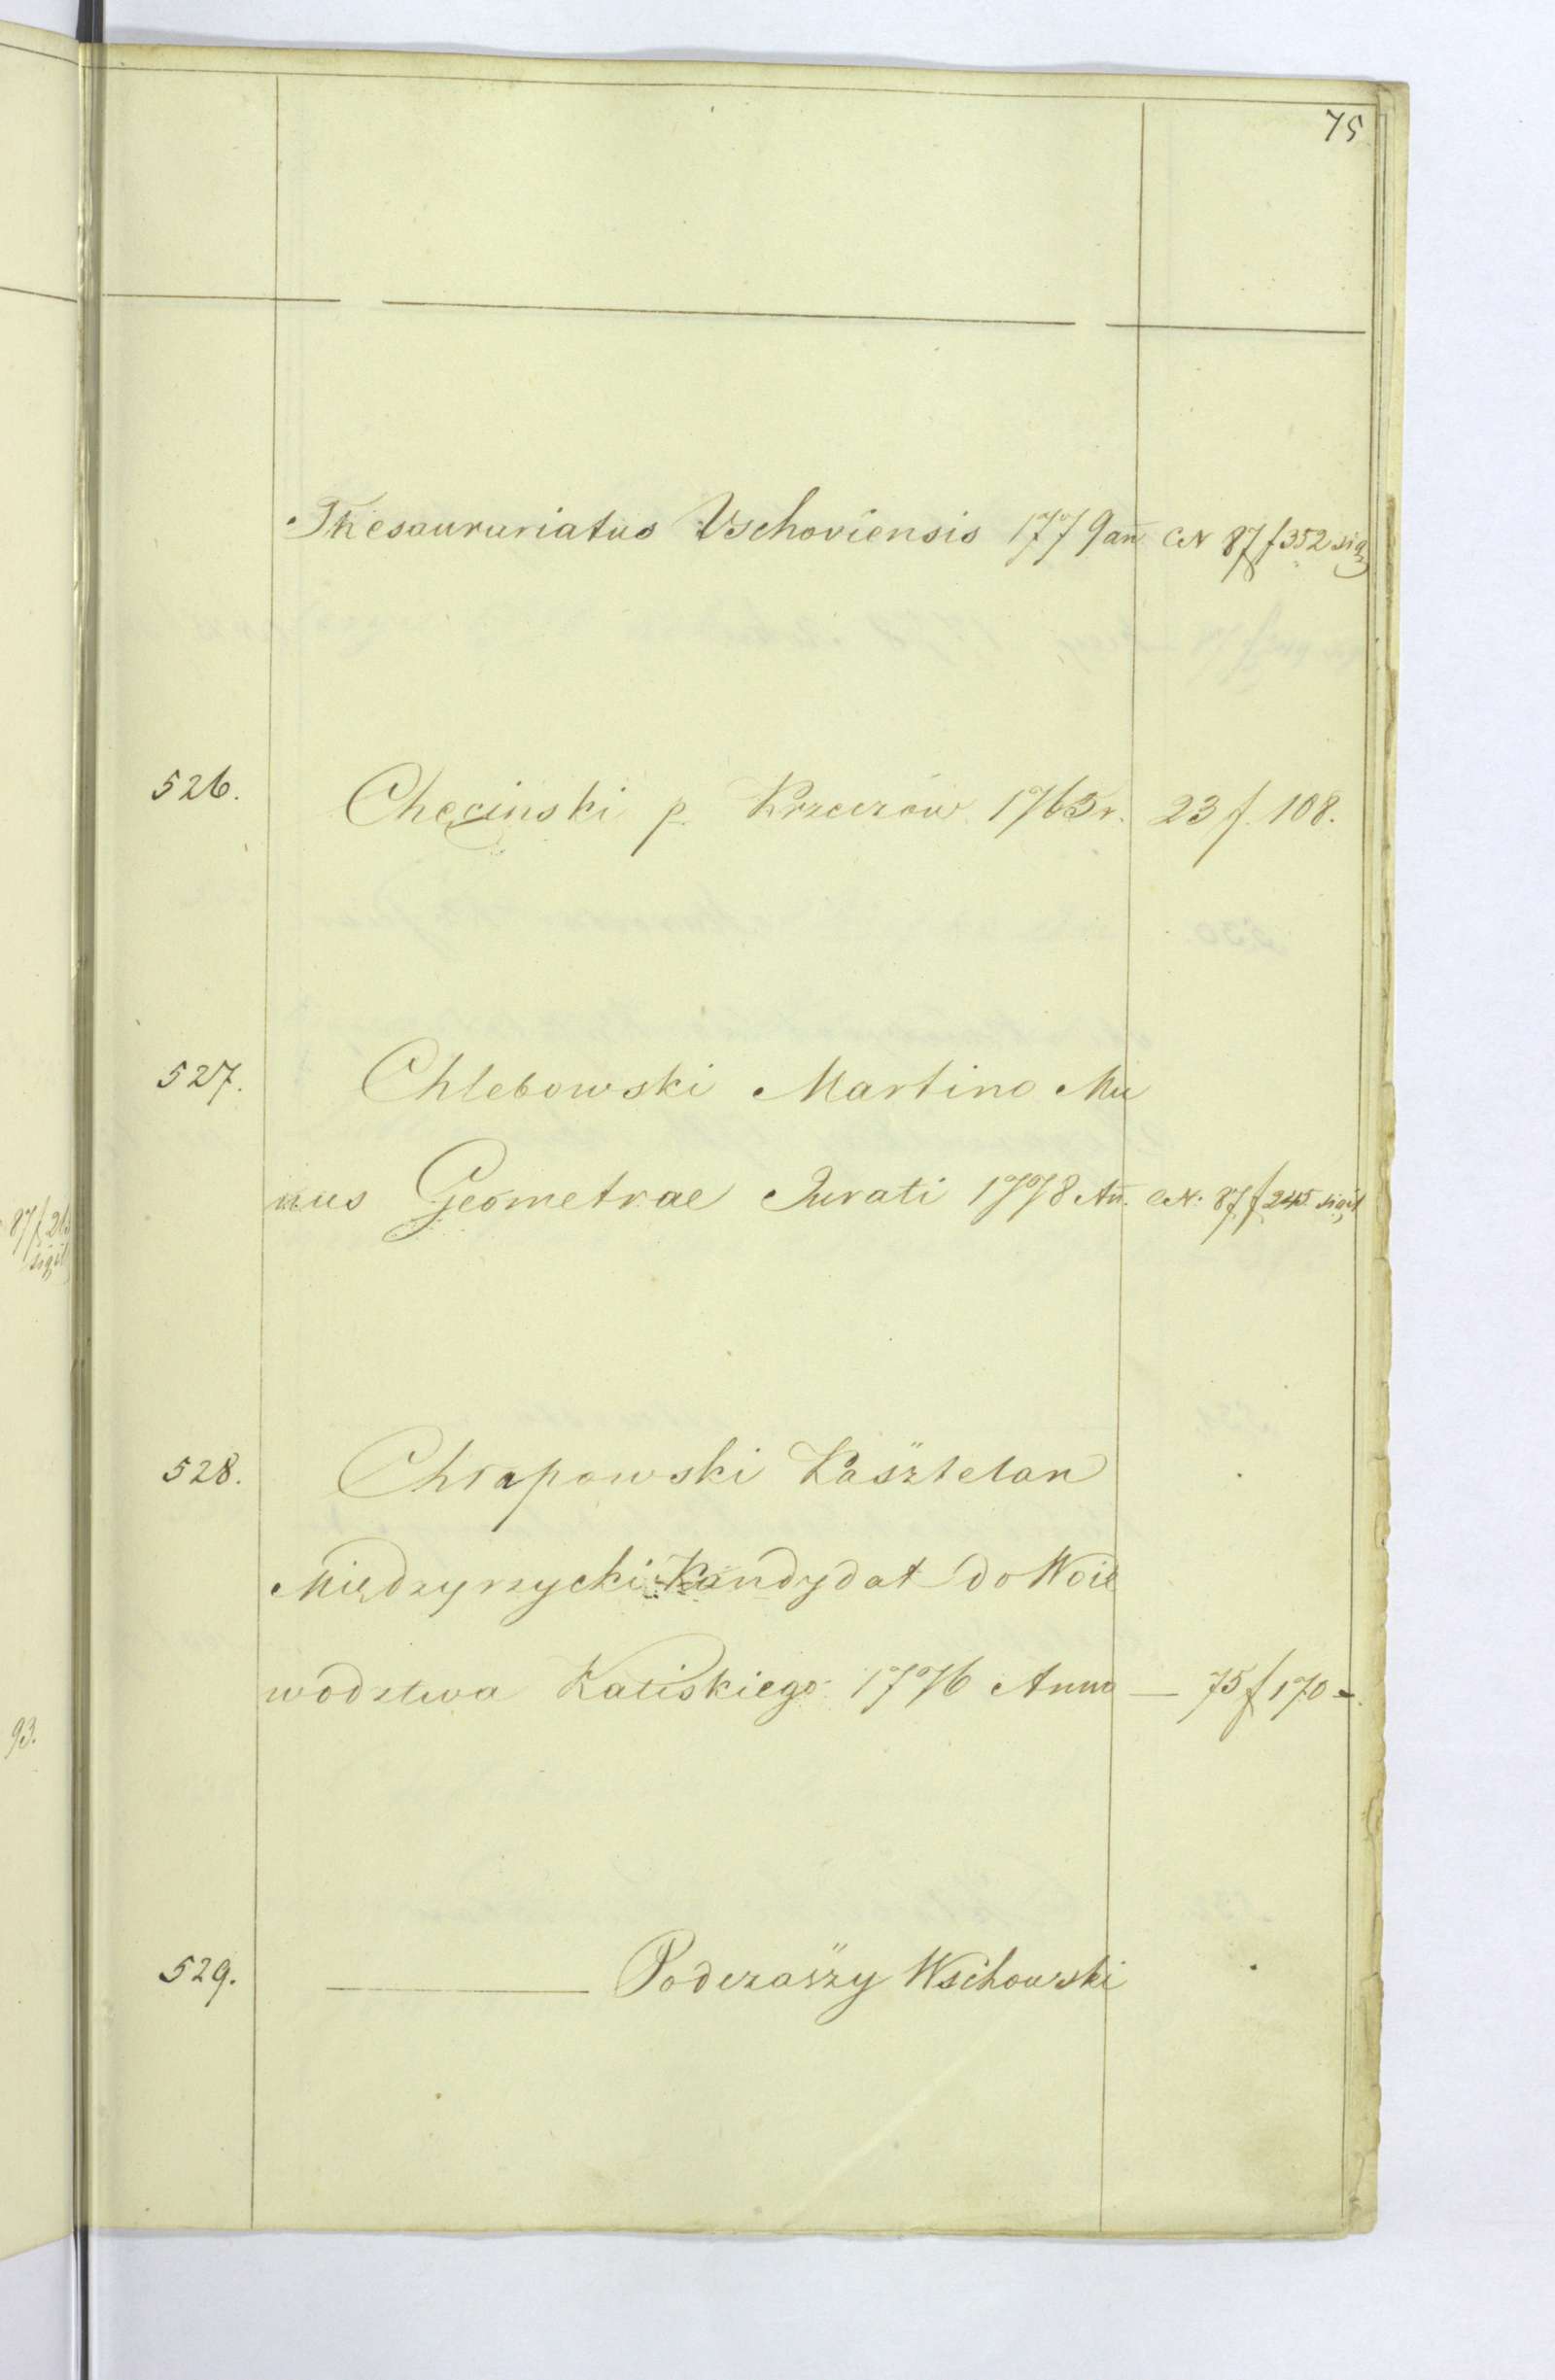 75
Thesaurariatus Vschoviensis 1779 an̄ N 87 f 352 sig
526. Chęcinski p. Krzeczow 1763 r. 23 f. 108.
527. Chlebowski Martino Mu
nus Geometrae Jurati 1778 An̄. N. 87 f 245 sigil
528. Chłapowski Kasztelan
Międzyrzycki Kandydat do Woie
wodztwa Kaliskiego 1776 Anno — 75 f 170 -
529. ——— Podczaszy Wschowski
87 f 21
sigil
93.